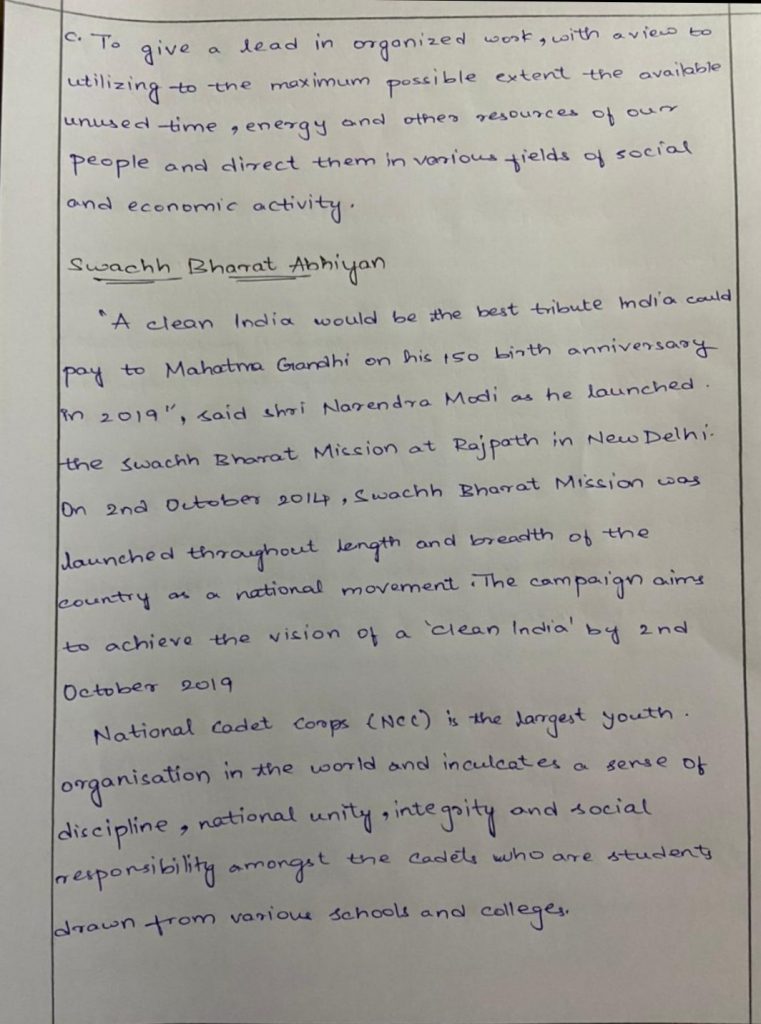 C. To give a lead in organized work, with a view to
utilizing to the maximum possible extent the available
unused time, energy and other resources of our
people and direct them in various fields of social
and economic activity.
Swachh Bharat Abhiyan
"A clean India would be the best tribute India could
pay to Mahatma Gandhi on his 150 birth anniversary
in 2019", said shri Narendra Modi as he launched.
the Swachh Bharat Mission at Rajpath in New Delhi.
On 2nd October 2014, Swachh Bharat Mission was
launched throughout length and breadth of the
country as a national movement. The campaign aims
to achieve the vision of a 'clean India' by 2nd
October 2019
National Cadet Corps (NCC) is the largest youth.
organisation in the world and inculcates a sense of
discipline, national unity, integrity and social
responsibility amongst the cadets who are students
drawn from various schools and colleges.